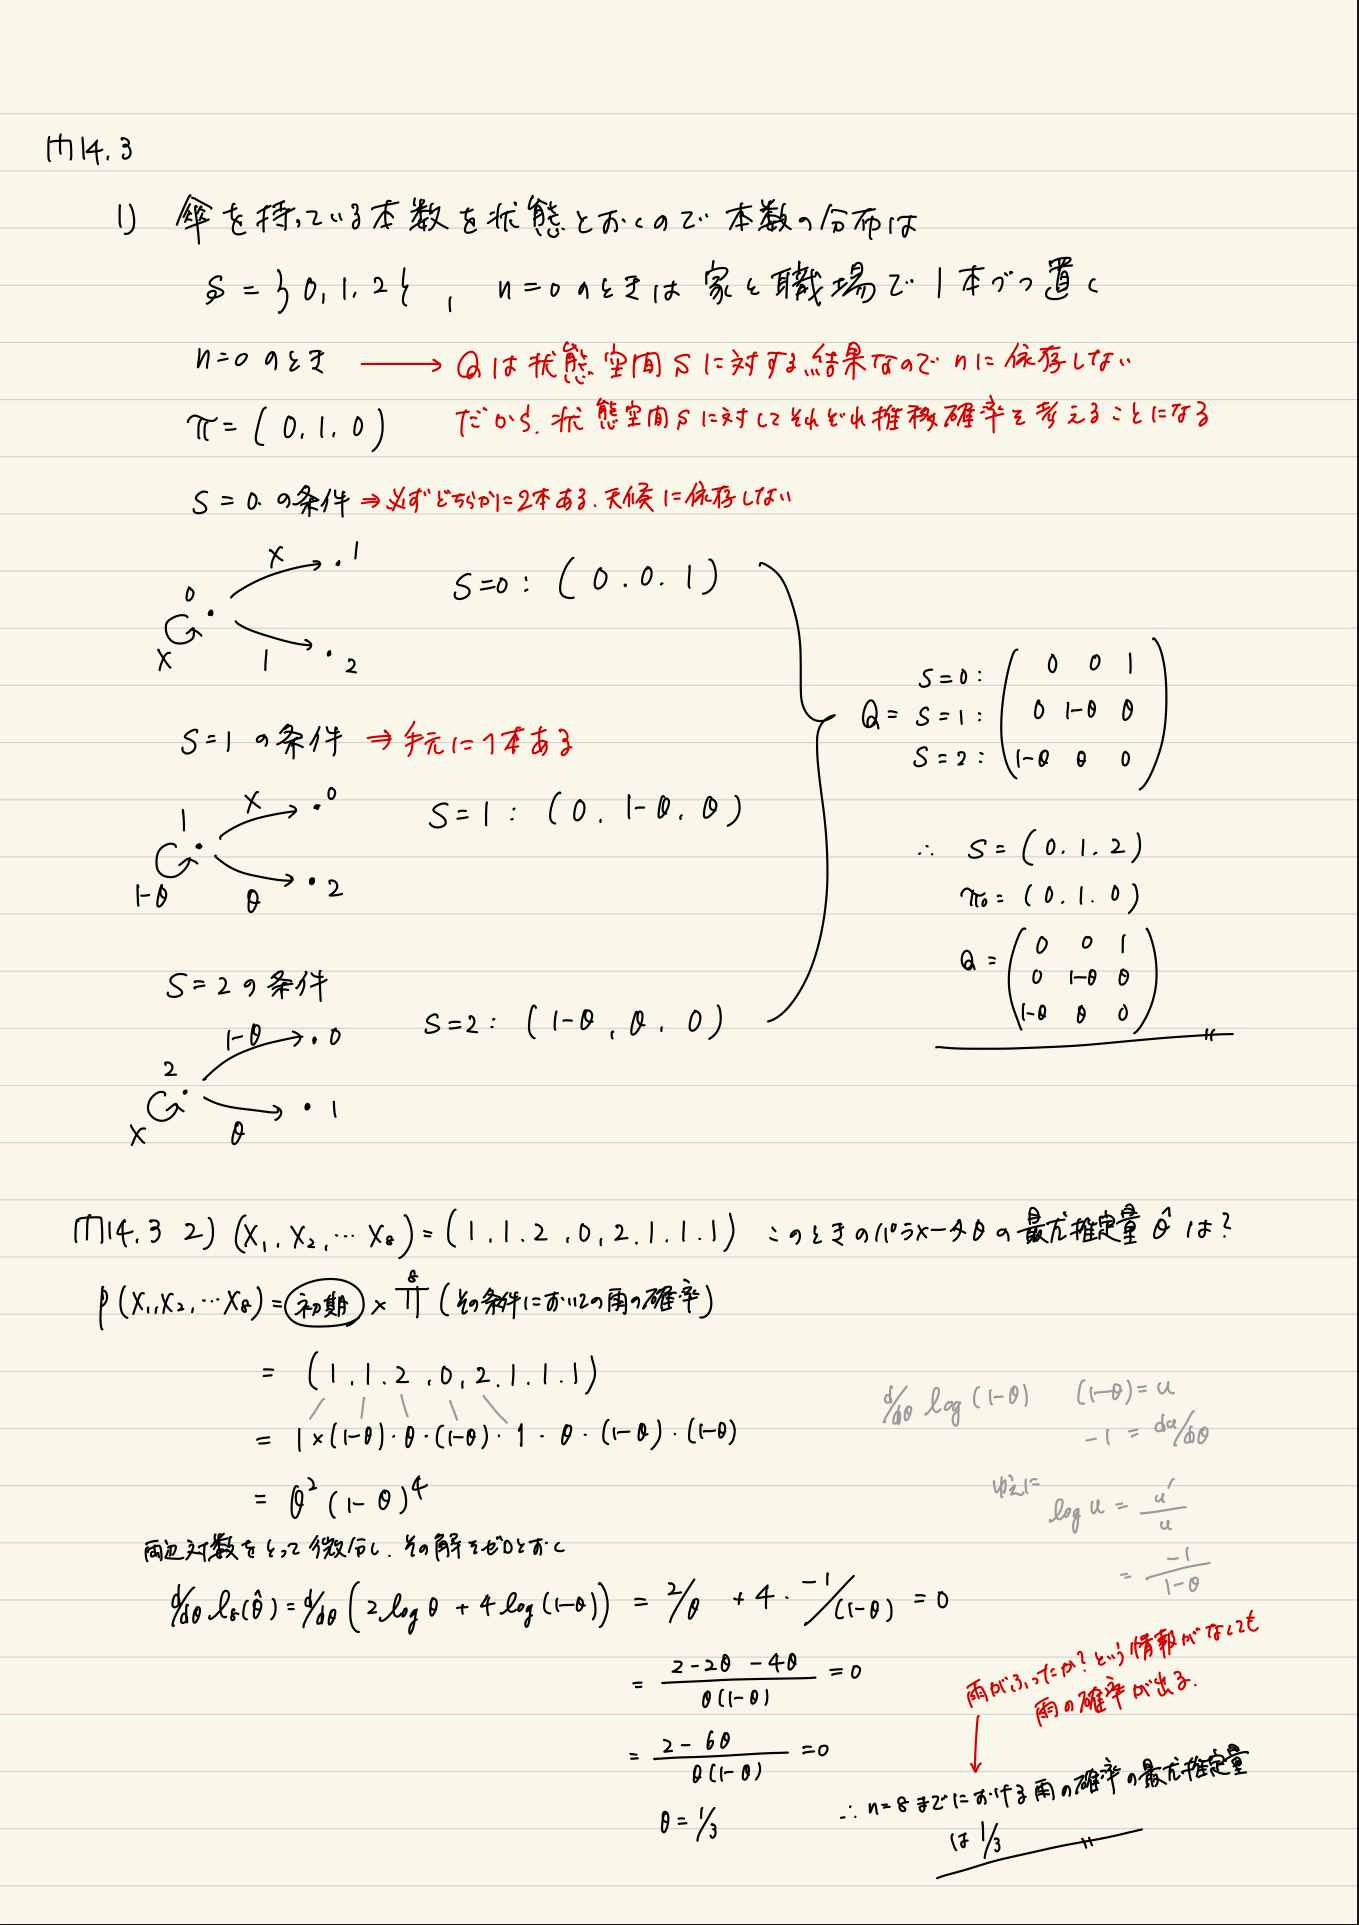 問14.3
1) 傘を持っている本数を状態とおくので本数の分布は
S = {0,1,2} , n=0のときは家と職場で1本づつ置く
n=0のとき → Qは状態空間Sに対する結果なのでnに依存しない
π = (0,1,0) だから、状態空間Sに対してそれぞれ推移確率を考えることになる
S=0 の条件 ⇒ 必ずどちらかに2本ある.天候に依存しない
x 1
0
S=0: (0.0.1)
x 1 2
S=0: 0 0 1
Q= S=1: 0 1-θ θ
S=2: 1-θ θ 0
S=1 の条件 ⇒ 手元に1本ある
x 0
1
S=1: (0, 1-θ, θ)
1-θ θ 2
∴ S = (0.1.2)
π₀ = (0.1.0)
Q = 0 0 1
0 1-θ θ
1-θ θ 0
S=2の条件
1-θ 0
S=2: (1-θ, θ, 0)
2
1
x θ
問14.3 2) (X₁,X₂,…X₈)=(1.1.2,0,2.1.1.1) このときのパラメータθの最尤推定量 θ̂ は?
p(X₁,X₂,…X₈)=初期×∏⁸(その条件においての雨の確率)
= (1.1.2,0,2.1.1.1)
= 1×(1-θ)・θ・(1-θ)・1・θ・(1-θ)・(1-θ)
= θ²(1-θ)⁴
d/dθ log(1-θ) (1-θ)=u
-1 = du/dθ
ゆえに
log u = u'/u
= -1/1-θ
両辺対数をとって微分し、その解をゼロとおく
d/dθ l₈(θ̂) = d/dθ (2logθ + 4log(1-θ)) = 2/θ + 4・-1/(1-θ) = 0
= 2-2θ-4θ/θ(1-θ) = 0
= 2-6θ/θ(1-θ) = 0
θ = 1/3
雨がふったか?という情報がなくても
雨の確率が出る.
∴ n=8までにおける雨の確率の最尤推定量
は 1/3